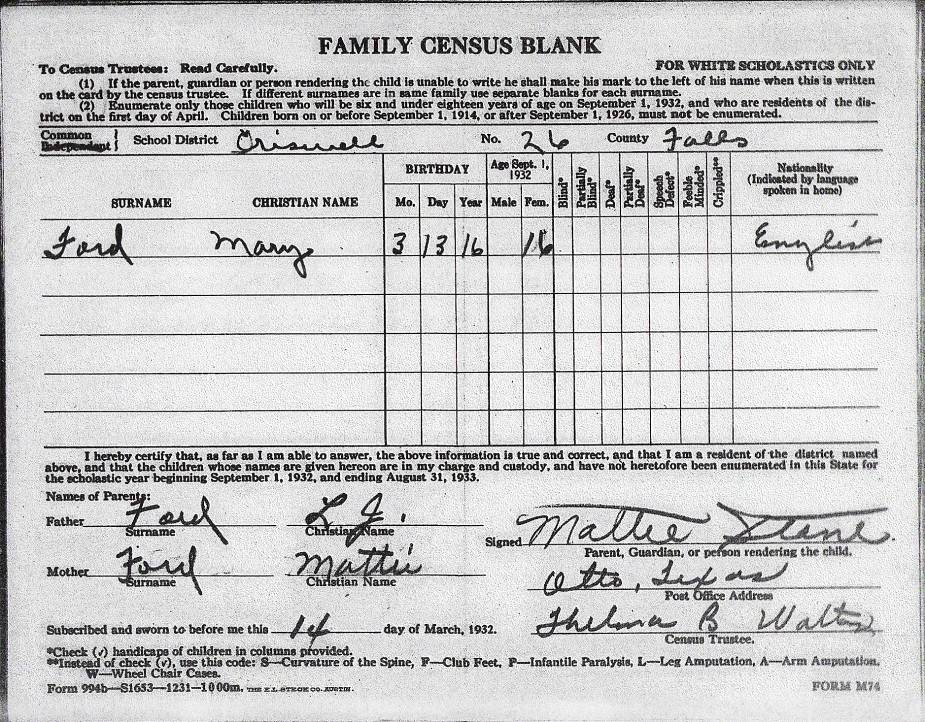 FAMILY CENSUS BLANK
To Census Trustees: Read Carefully. FOR WHITE SCHOLASTICS ONLY
(1) If the parent, guardian or person rendering the child is unable to write he shall make his mark to the left of his name when this is written
on the card by the census trustee. If different surnames are in same family use separate blanks for each surname.
(2) Enumerate only those children who will be six and under eighteen years of age on September 1, 1932, and who are residents of the dis-
trict on the first day of April. Children born on or before September 1, 1914, or after September 1, 1926, must not be enumerated.
Common
Independent } School District Criswell No. 26 County Falls
SURNAME CHRISTIAN NAME BIRTHDAY Mo. Day Year Age Sept. 1, 1932 Male Fem. Blind* Partially Blind* Deaf* Partially Deaf* Speech Defect* Feeble Minded* Crippled** Nationality (Indicated by language spoken in home)
Ford Mary 3 13 16 16 English
I hereby certify that, as far as I am able to answer, the above information is true and correct, and that I am a resident of the district named
above, and that the children whose names are given hereon are in my charge and custody, and have not heretofore been enumerated in this State for
the scholastic year beginning September 1, 1932, and ending August 31, 1933.
Names of Parents:
Father Ford L J.
Surname Christian Name
Signed Mattie Stone
Parent, Guardian, or person rendering the child.
Mother Ford Mattie
Surname Christian Name
Otto, Texas
Post Office Address
Subscribed and sworn to before me this 14 day of March, 1932.
Thelma B Walton
Census Trustee.
*Check (√) handicaps of children in columns provided.
**Instead of check (√), use this code: S—Curvature of the Spine, F—Club Feet, P—Infantile Paralysis, L—Leg Amputation, A—Arm Amputation.
W—Wheel Chair Cases.
Form 994b—S1653—1231—1000m. THE E.L. STECK CO. AUSTIN. FORM M74